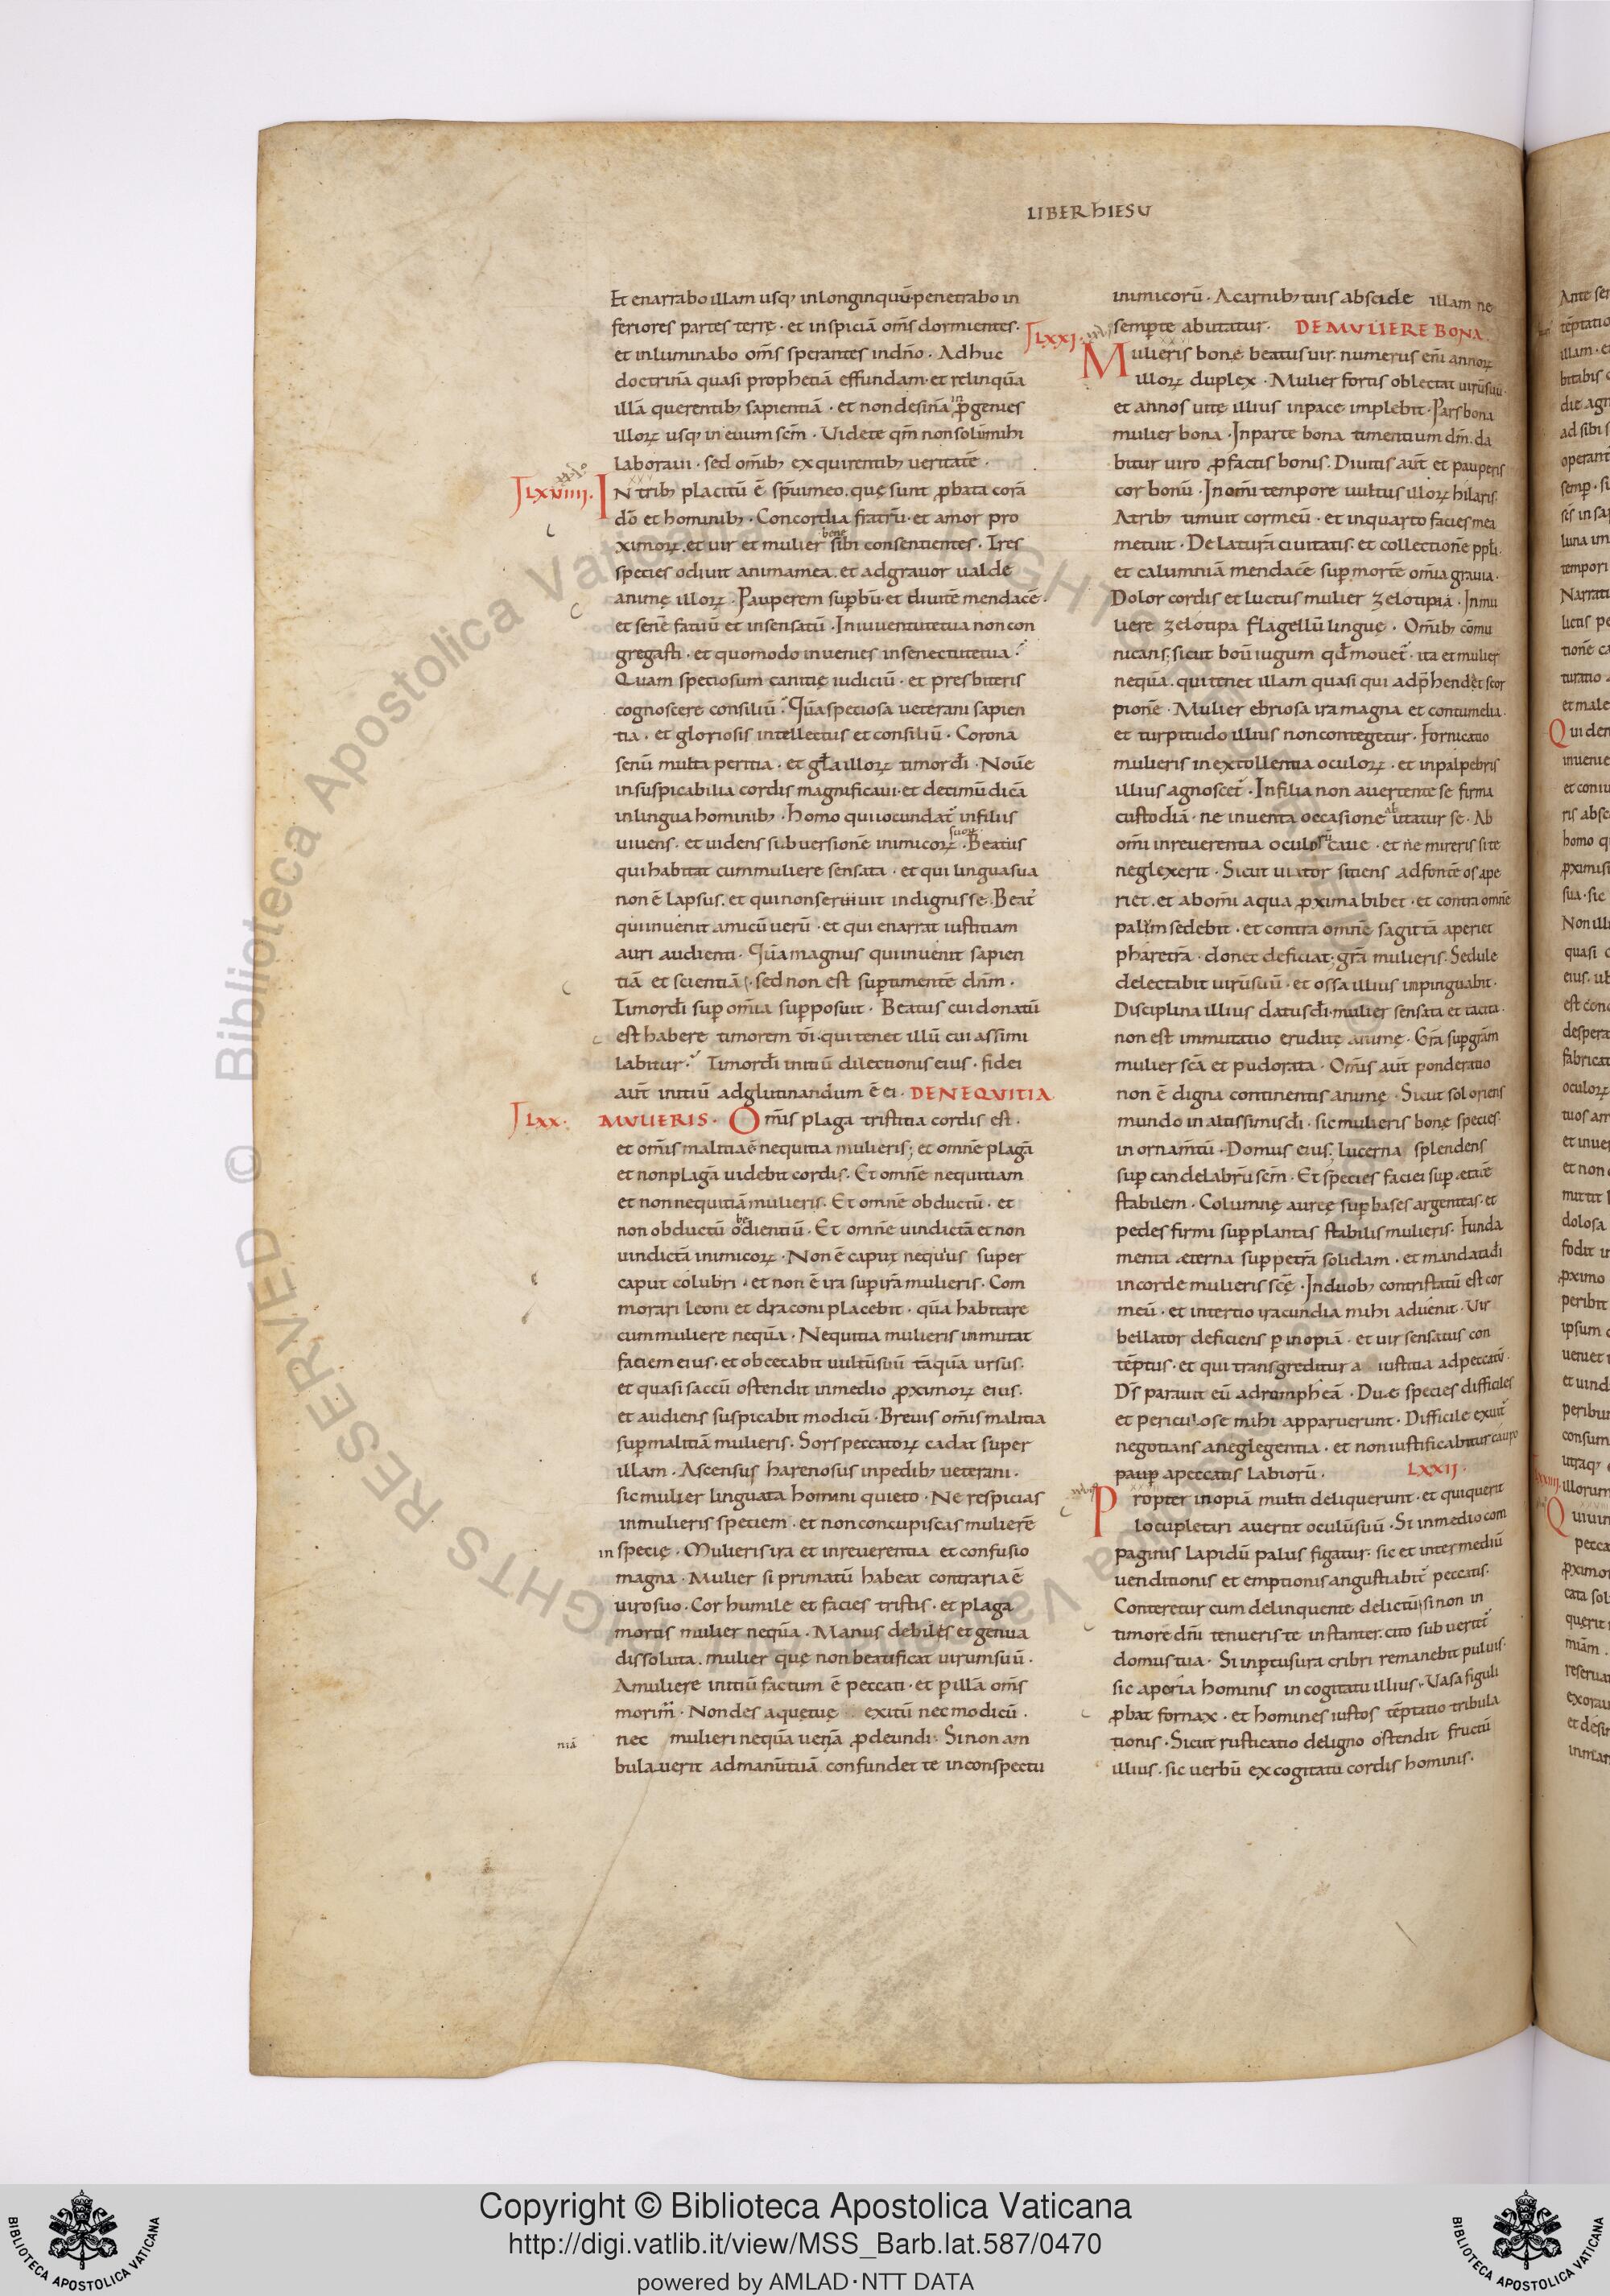 LIBER hIESU
Et enarrabo illam usq; inlonginquū·penetrabo in
feriores partes terrę · et inspiciā om̄s dormientes·
et inluminabo om̄s sperantes indn̄o · Adhuc
doctrinā quasi prophetiā effundam·et relinquā
illā querentib; sapientiā · et nondesinā in ꝓgenies
illoꝝ usq; in euum sc̄m · Uidete qm̄ nonsolūmihi
laboraui · sed om̄ib; exquirentib; ueritatē ·
LXVIIII. IN trib; placitū ē sp̄uimeo · quę sunt ꝓbata corā
dō et hominib; · Concordia fratrū · et amor pro
ximoꝝ · et uir et mulier bene sibi consentientes · Tres
species odiuit animamea · et adgrauor ualde
animę illoꝝ · Pauperem sup̄bū·et diuitē mendacē·
et senē fatuū et insensatū · Iniuuentutetua noncon
gregasti · et quomodo inuenies insenectutetua ·
Quam speciosum canitię iudiciū · et presbiteris
cognoscere consiliū · Quāspeciosa ueterani sapien
tia · et gloriosis intellectus et consiliū · Corona
senū multa peritia · et gl̄ailloꝝ timordī · Nouē
insuspicabilia cordis magnificaui·et decimū dicā
inlingua hominib; · Homo quiiocundat̄ infiliis
uiuens · et uidens subuersionē inimicoꝝ suoꝝ · Beatus
quihabitat cummuliere sensata · et qui linguasua
non ē lapsus · et quinonseruiuit indignisse · Beat᾽
quiinuenit amicū uerū · et qui enarrat iustitiam
auri audienti · Quāmagnus quiinuenit sapien
tiā et scientiā · sed non est sup̄timentē dn̄m ·
Timordī sup̄ om̄ia sup̄posuit · Beatus cuidonatū
est habere timorem dī·quitenet illū cui assimi
labitur · Timordī initiū dilectionis eius · fidei
aut̄ initiū adglutinandum ē ei · DENEQUITIA
LXX. MULIERIS · Om̄is plaga tristitia cordis est ·
et om̄is malitiaē nequitia mulieris; et omnē plagā
et nonplagā uidebit cordis · Et omnē nequitiam
et nonnequitiā mulieris · Et omnē obductū · et
non obductū odientiū · Et omnē uindictā et non
uindictā inimicoꝝ · Non ē caput nequius super
caput colubri · et non ē ira sup̄irā mulieris · Com
morari leoni et draconi placebit · quā habitare
cummuliere nequā · Nequitia mulieris inmutat
faciem eius · et obcecabit uultūsuū tāquā ursus·
et quasi saccū ostendit inmedio ꝓximoꝝ eius ·
et audiens suspicabit modicū · Breuis om̄is malitia
sup̄malitiā mulieris · Sorspeccatoꝝ cadat super
illam · Ascensus harenosus inpedib; ueterani ·
sic mulier linguata homini quieto · Ne respicias
inmulieris speciem · et nonconcupiscas mulierē
in specię · Mulierisira et inreuerentia et confusio
magna · Mulier si primatū habeat contraria ē
uirosuo · Cor humile et facies tristis · et plaga
mortis mulier nequā · Manus debiles et genua
dissoluta · mulier quę nonbeatificat uirumsuū ·
Amuliere initiū factum ē peccati · et p̄illā om̄s
morim᾽ · Nondes aquętuę exitū necmodicū ·
niā nec mulierinequā ueniā ꝓdeundi · Sinonam
bulauerit admanūtuā confundet te inconspectu
inimicorū · Acarnib; tuis abscide illam ne
semp̄te abutatur · DEMULIERE BONA
LXXI. Mulieris bonę beatusuir · numerus enī annoꝝ
illoꝝ duplex · Mulier fortis oblectat uirūsuū ·
et annos uitę illius inpace implebit · Parsbona
mulier bona · Inparte bona timentium dm̄ · da
bitur uiro ꝓfactis bonis · Diuitis aut̄ et pauperis
cor bonū · Inom̄i tempore uultus illoꝝ hilaris ·
Atrib; timuit cormeū · et inquarto facies mea
metuit · Delaturā ciuitatis · et collectionē ppl̄i ·
et calumniā mendacē sup̄mortē om̄ia grauia ·
Dolor cordis et luctus mulier zelotipia · Inmu
liere zelotipa flagellū linguę · Om̄ib; cōmu
nicans; sicut boū iugum qd̄mouet᾽ · ita et mulier
nequā · quitenet illam quasi qui adp̄hendet scor
pionē · Mulier ebriosa ira magna et contumelia ·
et turpitudo illius noncontegetur · Fornicatio
mulieris inextollentia oculoꝝ · et inpalpebris
illius agnoscet᾽ · Infilia non auertente se firma
custodiā · ne inuenta occasione utatur se · Ab
om̄i inreuerentia oculorū caue · et ne mireris si te
neglexerit · Sicut uiator sitiens adfontē os ape
riet · et abom̄i aqua ꝓxima bibet · et contra omnē
palūm sedebit · et contra omnē sagittā aperiet
pharetrā · donec deficiat; grā mulieris · Sedule
delectabit uirūsuū · et ossa illius inpinguabit ·
Disciplina illius datusdī·mulier sensata et tacita ·
non est immutatio eruditę animę · Grā sup̄grām
mulier scā et pudorata · Om̄is aut̄ ponderatio
non ē digna continentis animę · Sicut sol oriens
mundo in altissimisdī · sic mulieris bonę species ·
in ornam̄tū · Domus eius; lucerna splendens
sup̄ candelabrū scm̄ · Et species faciei sup̄ · etatē
stabilem · Columnę aureę sup̄ bases argenteas · et
pedes firmi sup̄plantas stabilis mulieris · Funda
menta ęterna sup̄petrā solidam · et mandatadī
incorde mulieris scę̄ · Induob; contristatū est cor
meū · et intertio iracundia mihi aduenit · Uir
bellator deficiens p̄ inopiā · et uir sensatus con
tēptus · et qui transgreditur a iustitia adpeccatū ·
Dn̄s parauit eū adromphęā · Duę species difficiles
et periculose mihi apparuerunt · Difficile exuit᾽
negotians aneglegentia · et noniustificabitur caupo
paup̄ apeccatis labiorū · LXXII.
Propter inopiā multi deliquerunt · et quiquerit
locupletari auertit oculūsuū · Si inmedio com
paginis lapidū palus figatur · sic et inter mediū
uenditionis et emptionis angustiabit᾽ peccatis ·
Conteretur cum delinquente delictū; si non in
timore dn̄i tenueris te instanter · cito subuertet᾽
domus tua · Si inp̄tusura cribri remanebit puluis ·
sic aporia hominis in cogitatu illius · Uasa figuli
ꝓbat fornax · et homines iustos tēptatio tribula
tionis · Sicut rusticatio deligno ostendit fructū
illius · sic uerbū ex cogitatu cordis hominis ·
Copyright © Biblioteca Apostolica Vaticana
http://digi.vatlib.it/view/MSS_Barb.lat.587/0470
powered by AMLAD·NTT DATA